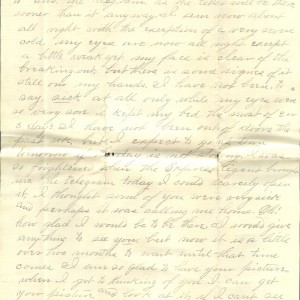 to and. the
sooner than it any way. I am now about
all right with the exception of a very severe
cold, my eyes are now all right except
a little weak yet my face is clear of the
breaking out, but there is some signs of it
still on my hands. I have not been, to
say, sick at all only while my eyes were
so very sore I kept my bed the most of
days I have not been out of doors the
but I expect to go
today is not
so frightened when the Express agent brought
me the telegram today I could scarcely open
it. I thought some of you were very sick
and perhaps it was calling me home. Oh!
how glad I would be to be there. I would give
anything to see you, but now it is a little
over two months to wait until that time
comes. I am so glad to have your picture
when I get to thinking of you I can get
your picture and look at it as I can't see